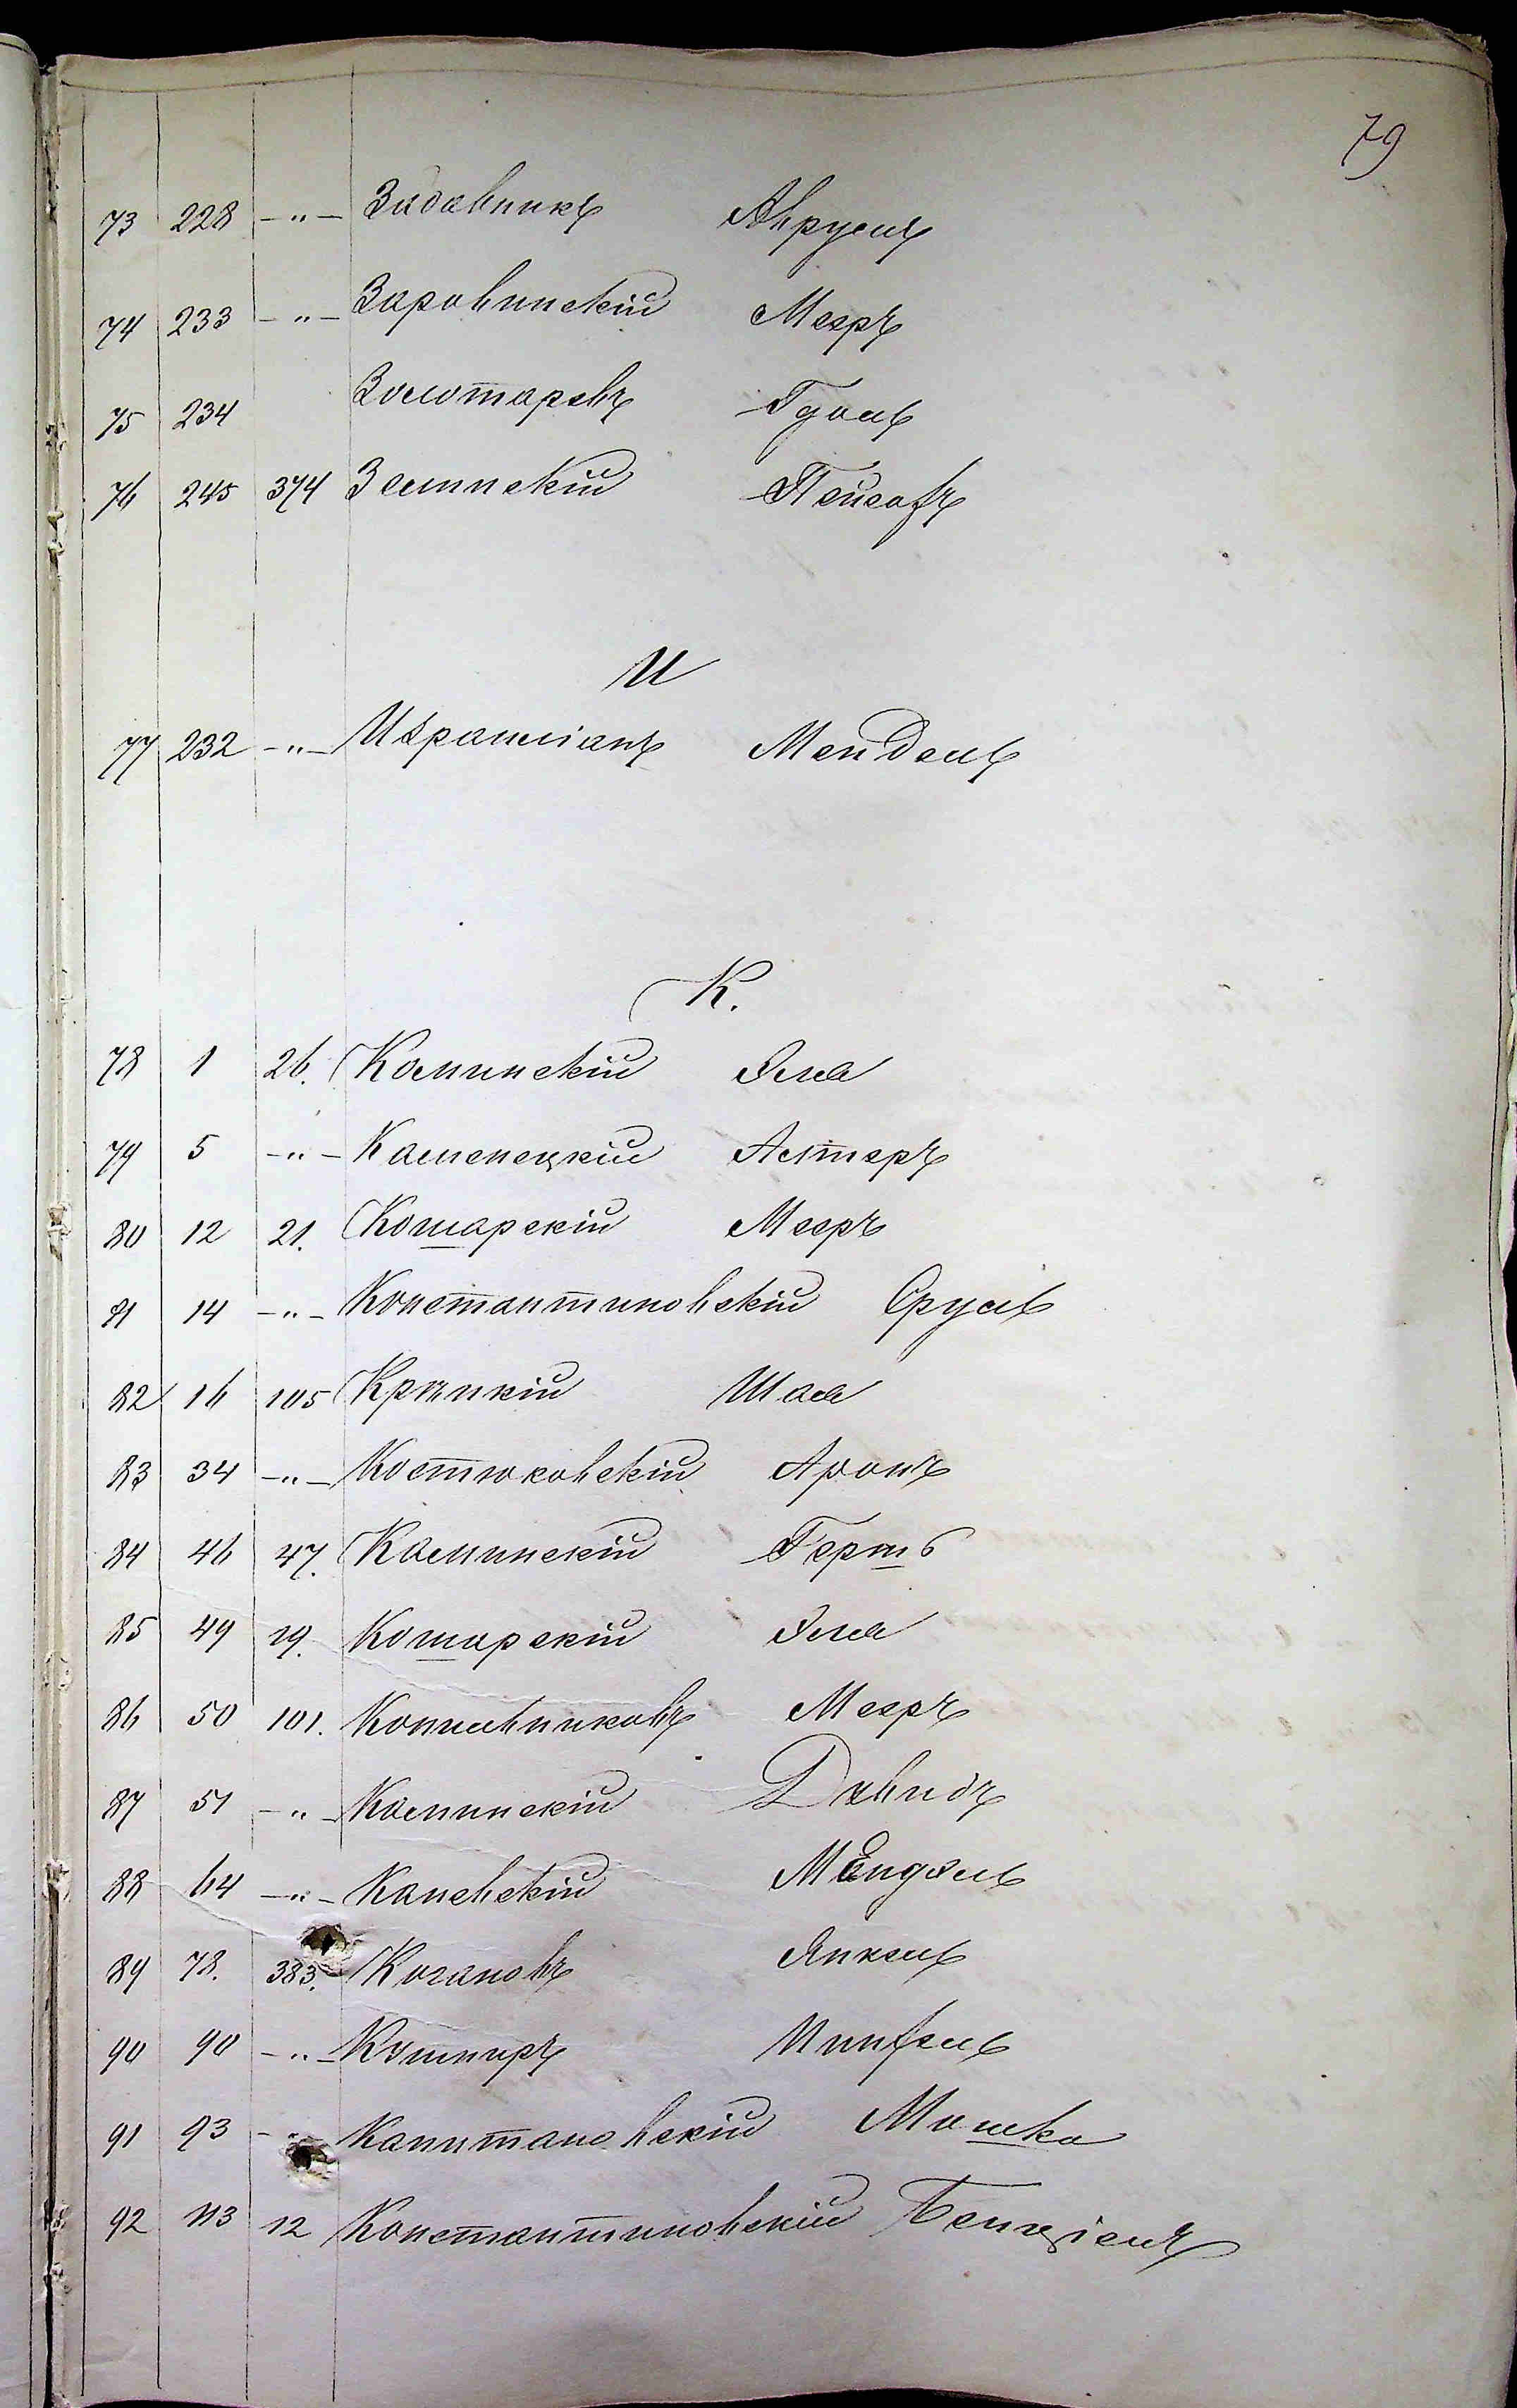 79
73 228 -"- Забавникъ Аврумъ
74 233 -"- Заровинскій Мееръ
75 234 Золотаревъ Гдаль
76 245 374 Зелинскій Пейсахъ
И
77 232 -"- Израиліанъ Мендель
К.
78 1 26. Каминскій Эля
79 5 -"- Каменецкій Астеръ
80 12 21. Кошарскій Мееръ
81 14 -"- Константиновскій Сруль
82 16 105 Крѣпкій Шая
83 34 -"- Костюковскій Аронъ
84 46 47. Каминскій Гершъ
85 49 29. Кошарскій Эля
86 50 101. Копильниковъ Мееръ
87 51 -"- Каминскій Давидъ
88 64 -"- Каневскій Мендель
89 78. 383. Кагановъ Янкель
90 90 -"- Кушниръ
91 93 -"- Капитановскій Мошко
92 113 12 Константиновскій Бенціенъ